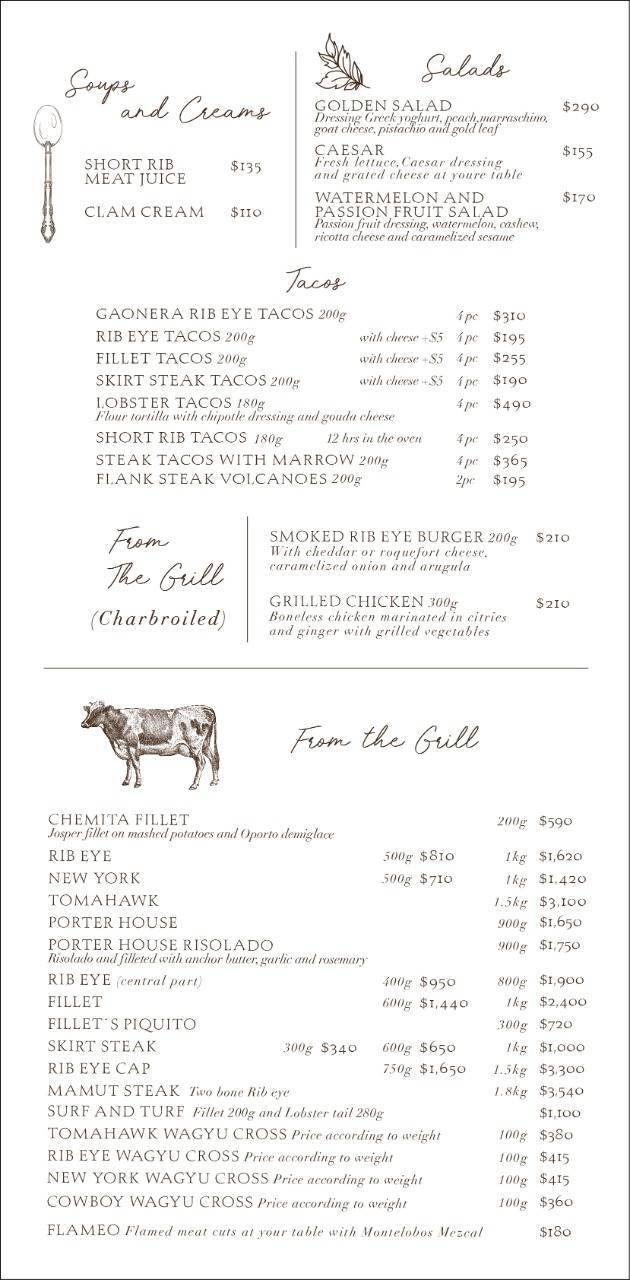 Soups
and Creams
SHORT RIB $135
MEAT JUICE
CLAM CREAM $110
Salads
GOLDEN SALAD $290
Dressing Greek yoghurt, peach,marraschino,
goat cheese, pistachio and gold leaf
CAESAR $155
Fresh lettuce, Caesar dressing
and grated cheese at youre table
WATERMELON AND $170
PASSION FRUIT SALAD
Passion fruit dressing, watermelon, cashew,
ricotta cheese and caramelized sesame
Tacos
GAONERA RIB EYE TACOS 200g 4pc $310
RIB EYE TACOS 200g with cheese +$5 4pc $195
FILLET TACOS 200g with cheese +$5 4pc $255
SKIRT STEAK TACOS 200g with cheese +$5 4pc $190
LOBSTER TACOS 180g 4pc $490
Flour tortilla with chipotle dressing and gouda cheese
SHORT RIB TACOS 180g 12 hrs in the oven 4pc $250
STEAK TACOS WITH MARROW 200g 4pc $365
FLANK STEAK VOLCANOES 200g 2pc $195
From
The Grill
(Charbroiled)
SMOKED RIB EYE BURGER 200g $210
With cheddar or roquefort cheese,
caramelized onion and arugula
GRILLED CHICKEN 300g $210
Boneless chicken marinated in citries
and ginger with grilled vegetables
From the Grill
CHEMITA FILLET 200g $590
Josper fillet on mashed potatoes and Oporto demiglace
RIB EYE 500g $810 1kg $1,620
NEW YORK 500g $710 1kg $1,420
TOMAHAWK 1.5kg $3,100
PORTER HOUSE 900g $1,650
PORTER HOUSE RISOLADO 900g $1,750
Risolado and filleted with anchor butter, garlic and rosemary
RIB EYE (central part) 400g $950 800g $1,900
FILLET 600g $1,440 1kg $2,400
FILLET´S PIQUITO 300g $720
SKIRT STEAK 300g $340 600g $650 1kg $1,000
RIB EYE CAP 750g $1,650 1.5kg $3,300
MAMUT STEAK Two bone Rib eye 1.8kg $3,540
SURF AND TURF Fillet 200g and Lobster tail 280g $1,100
TOMAHAWK WAGYU CROSS Price according to weight 100g $380
RIB EYE WAGYU CROSS Price according to weight 100g $415
NEW YORK WAGYU CROSS Price according to weight 100g $415
COWBOY WAGYU CROSS Price according to weight 100g $360
FLAMEO Flamed meat cuts at your table with Montelobos Mezcal $180